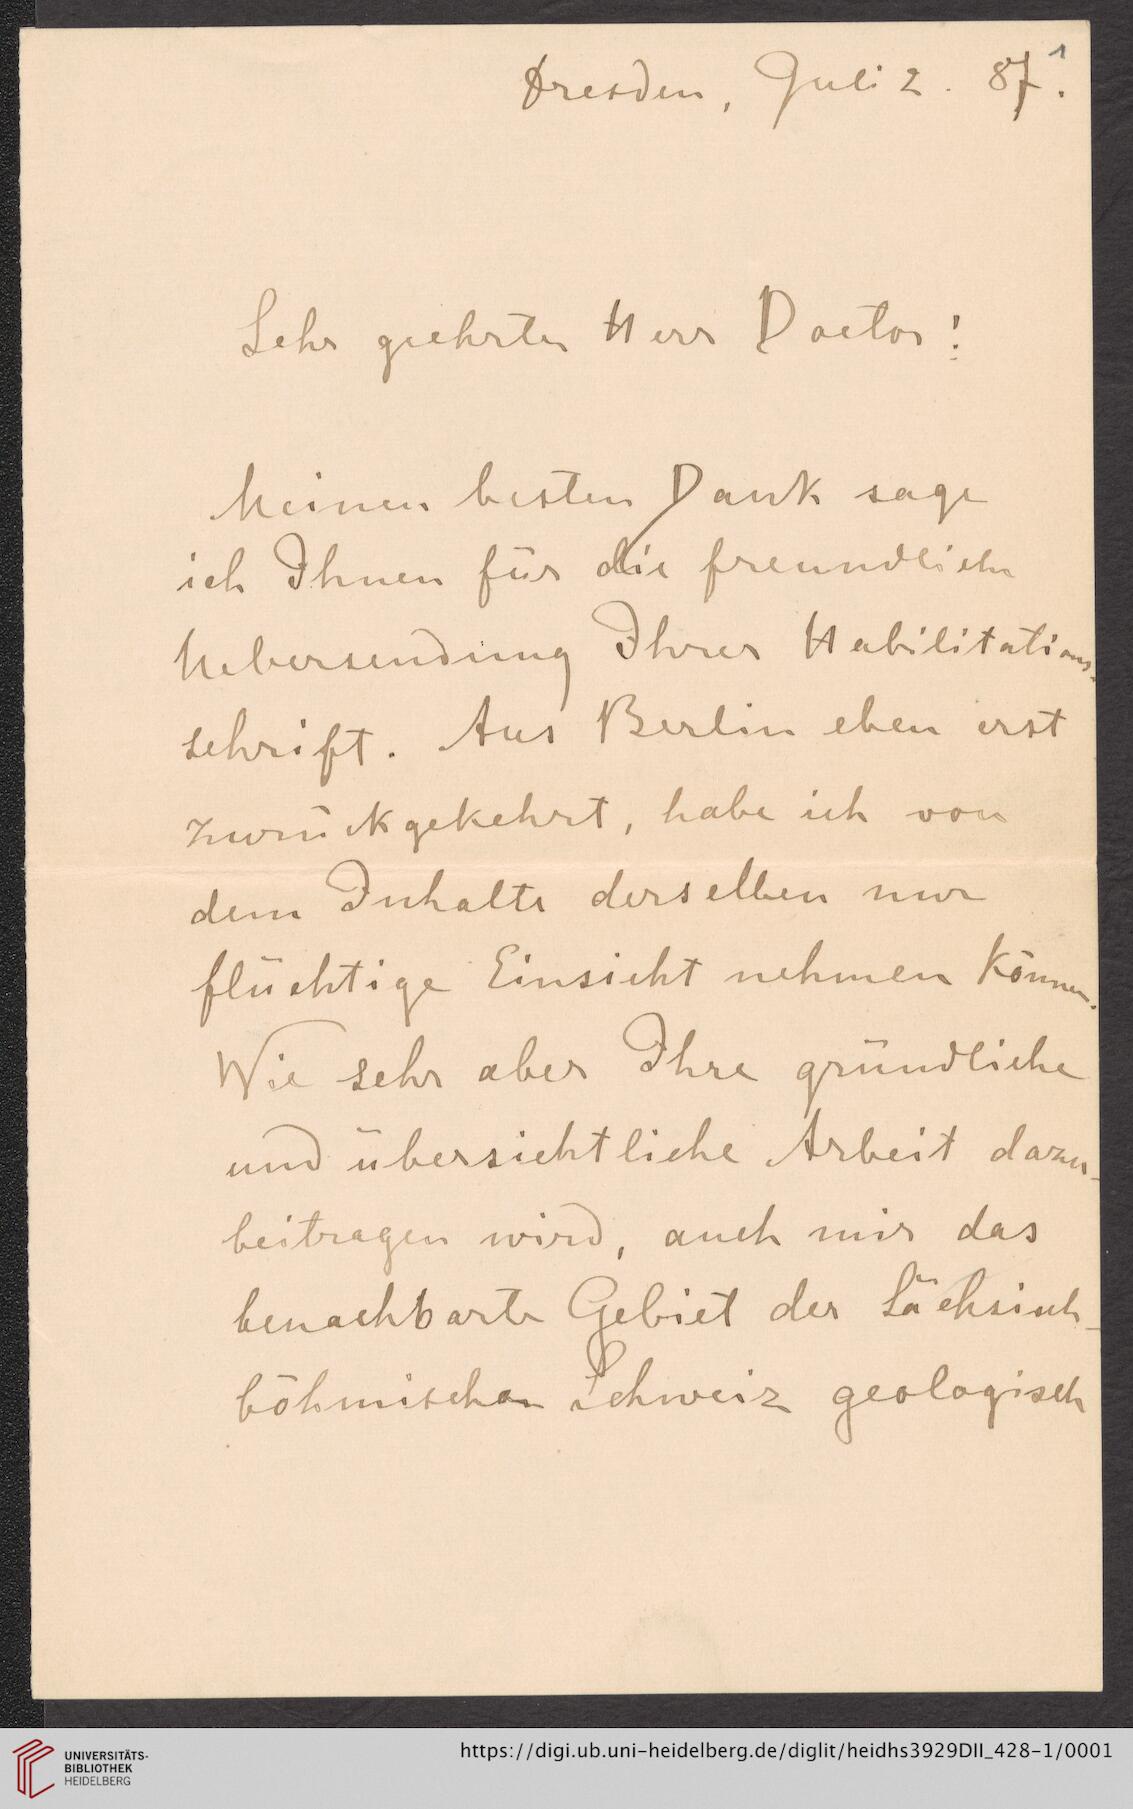 Dresden, Juli 2. 87.
1
Sehr geehrter Herr Doctor!
Meinen besten Dank sage
ich Ihnen für die freundliche
Uebersendung Ihrer Habilitations-
schrift. Aus Berlin eben erst
zurückgekehrt, habe ich von
dem Inhalte derselben nur
flüchtige Einsicht nehmen können.
Wie sehr aber Ihre gründliche
und übersichtliche Arbeit dazu-
beitragen wird, auch mir das
benachbarte Gebiet der Sächsisch-
böhmischen Schweiz geologisch
UNIVERSITÄTS-
BIBLIOTHEK
HEIDELBERG
https://digi.ub.uni-heidelberg.de/diglit/heidhs3929DII_428-1/0001